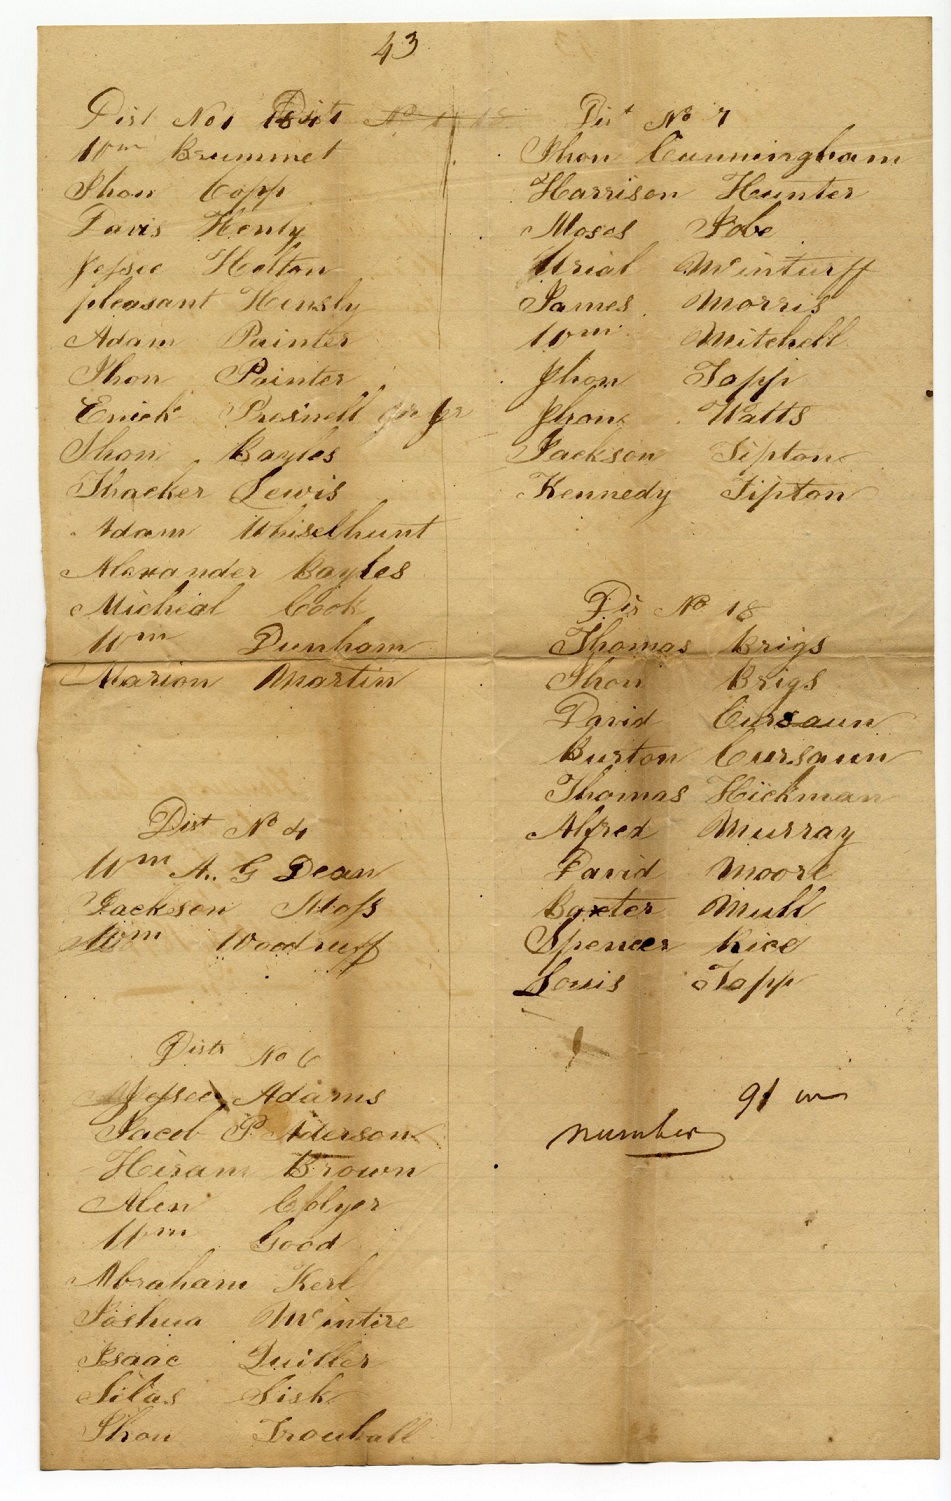 43
Dist No 1
Wm Brummet
Jhon Copp
Davis Henly
Jessie Helton
pleasant Hensly
Adam Painter
Jhon Painter
Enick Presnell Jr
Jhon Bayles
Thacker Lewis
Adam Whiselhunt
Alexander Bayles
Michial Cook
Wm Dunham
Marion Martin
Dist No 4
Wm A. G Dean
Jackson Moss
Wm Woodruff
Dist No 6
Jessee Adams
Jacob P Aderson
Hiram Brown
Alen Colyer
Wm Good
Abraham Kerl
Joshua Mcintire
Isaac Quiller
Silas Sisk
Jhon Trouball
Dist No 7
Jhon Cunningham
Harrison Hunter
Moses Jobe
Urial Mcinturff
James Morris
Wm Mitchell
Jhon Tapp
Jhon Watts
Jackson Tipton
Kennedy Tipton
Dis No 18
Thomas Brigs
Jhon Brigs
David Cursaun
Burton Cursaun
Thomas Hickman
Alfred Murray
David Moore
Baxter Mull
Spencer Rice
Louis Tapp
91 in
number